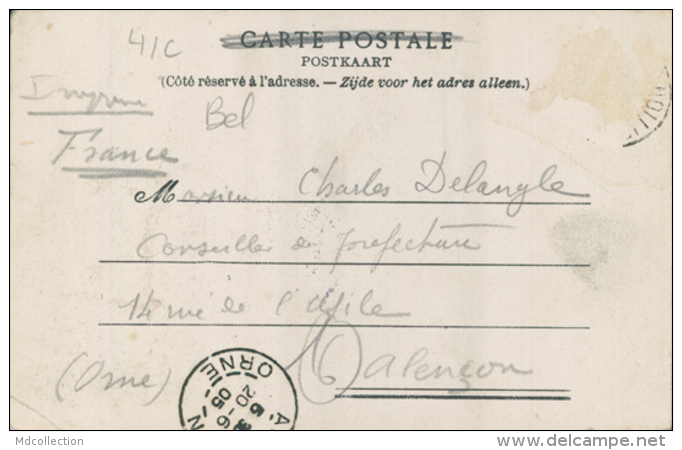 41C
CARTE POSTALE
POSTKAART
(Côté réservé à l'adresse. — Zijde voor het adres alleen.)
Bel
France
Monsieur Charles Delangle
Conseiller de préfecture
14 rue de l'Asile
Alençon
(Orne)
ORNE
20-6
05
Mdcollection
www.delcampe.net